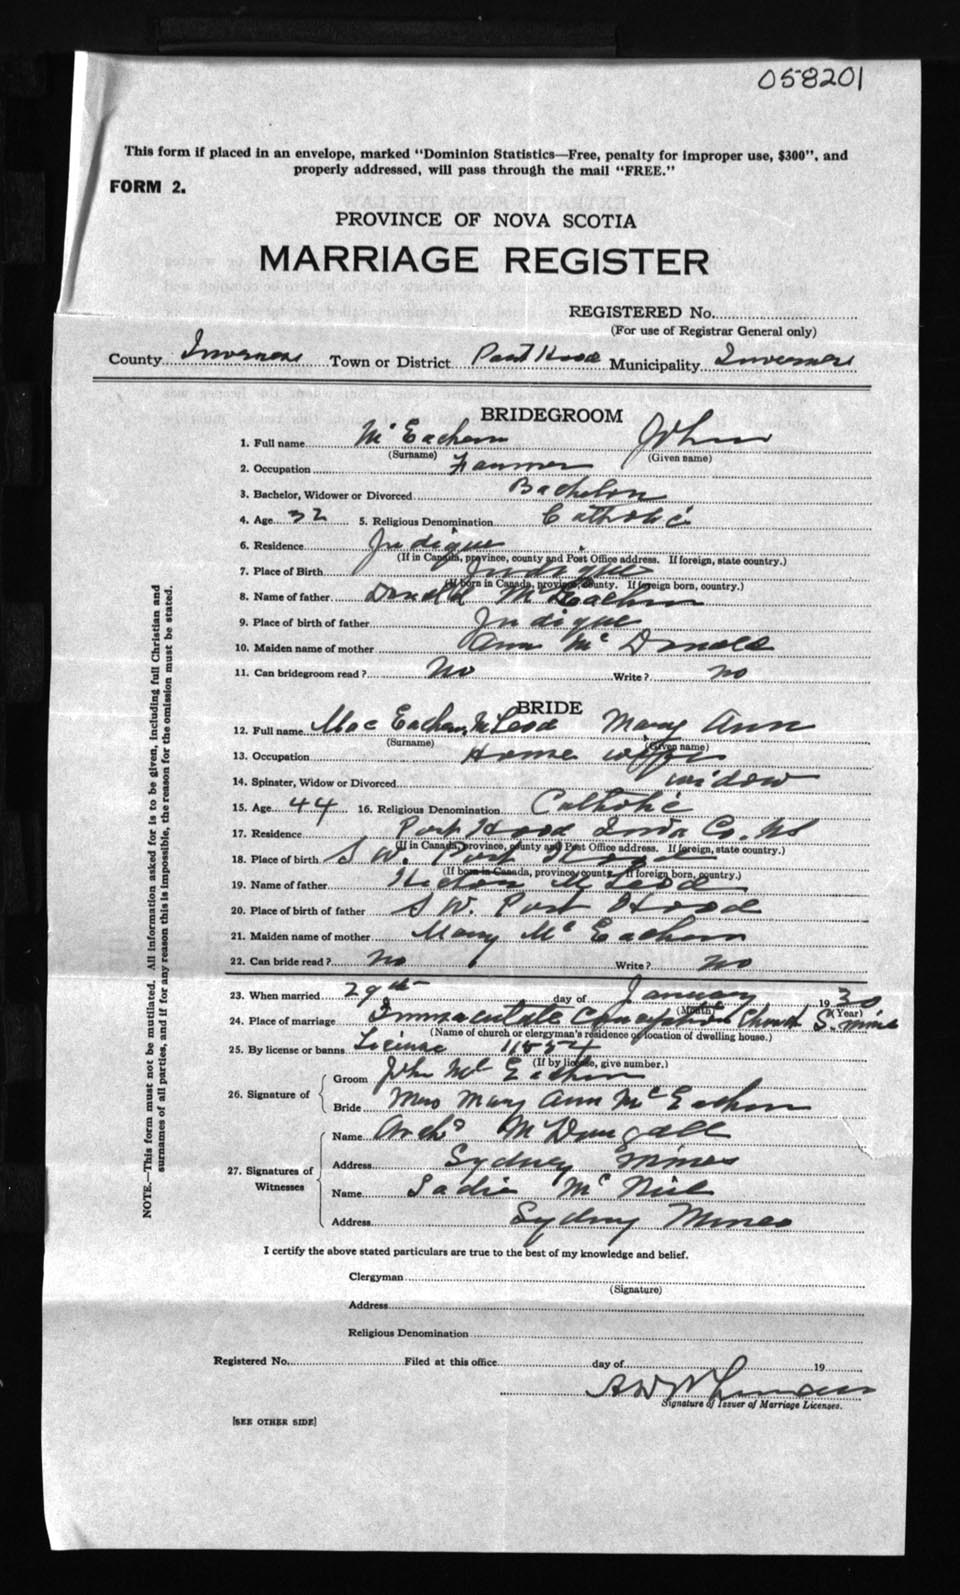 058201
This form if placed in an envelope, marked "Dominion Statistics—Free, penalty for improper use, $300", and
properly addressed, will pass through the mail "FREE."
FORM 2.
PROVINCE OF NOVA SCOTIA
MARRIAGE REGISTER
REGISTERED No.
(For use of Registrar General only)
County Inverness Town or District Port Hood Municipality Inverness
BRIDEGROOM
1. Full name Mc Eachern John
(Surname) (Given name)
2. Occupation Farmer
3. Bachelor, Widower or Divorced Bachelor
4. Age 32 5. Religious Denomination Catholic
6. Residence Judique
(If in Canada, province, county and Post Office address. If foreign, state country.)
7. Place of Birth Judique
(If born in Canada, province, county. If foreign born, country.)
8. Name of father Donald McEachern
9. Place of birth of father Judique
10. Maiden name of mother Ann Mc Donald
11. Can bridegroom read? No Write? no
BRIDE
12. Full name Mac Eachern, McLeod Mary Ann
(Surname) (Given name)
13. Occupation Home wife
14. Spinster, Widow or Divorced widow
15. Age 44 16. Religious Denomination Catholic
17. Residence Port Hood Inv'a Co. NS
(If in Canada, province, county and Post Office address. If foreign, state country.)
18. Place of birth S W. Port Hood
(If born in Canada, province, county. If foreign born, country.)
19. Name of father Hector McLeod
20. Place of birth of father S W. Port Hood
21. Maiden name of mother Mary Mc Eachern
22. Can bride read? no Write? no
23. When married 29th day of January 1930
(Month) (Year)
24. Place of marriage Immaculate Conception Church S. mines
(Name of church or clergyman's residence or location of dwelling house.)
25. By license or banns License 11534
(If by license, give number.)
26. Signature of Groom John Mc Eachern
Bride Mrs Mary Ann McEachern
27. Signatures of Witnesses Name Archd McDougall
Address Sydney Mines
Name Sadie Mc Neil
Address Sydney Mines
I certify the above stated particulars are true to the best of my knowledge and belief.
Clergyman
(Signature)
Address
Religious Denomination
Registered No. Filed at this office day of 19
Signature of Issuer of Marriage Licenses.
[SEE OTHER SIDE]
NOTE.—This form must not be mutilated. All information asked for is to be given, including full Christian and
surnames of all parties, and if for any reason this is impossible, the reason for the omission must be stated.